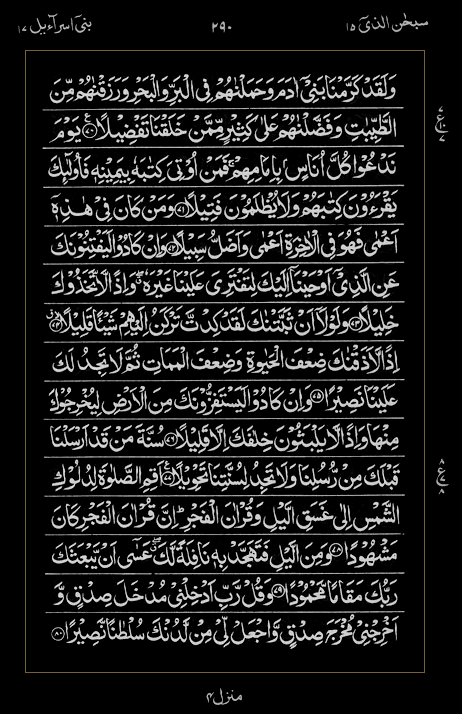 سبحٰن الذیٓ ۱۵
۲۹۰
بنیٓ اسرآءیل ۱۷
وَلَقَدْ كَرَّمْنَا بَنِيْٓ اٰدَمَ وَحَمَلْنٰهُمْ فِي الْبَرِّ وَالْبَحْرِ وَرَزَقْنٰهُمْ مِّنَ
الطَّيِّبٰتِ وَفَضَّلْنٰهُمْ عَلٰى كَثِيْرٍ مِّمَّنْ خَلَقْنَا تَفْضِيْلًا ﴿۷۰﴾ يَوْمَ
نَدْعُوْا كُلَّ اُنَاسٍۢ بِاِمَامِهِمْ ۚ فَمَنْ اُوْتِيَ كِتٰبَهٗ بِيَمِيْنِهٖ فَاُولٰٓئِكَ
يَقْرَءُوْنَ كِتٰبَهُمْ وَلَا يُظْلَمُوْنَ فَتِيْلًا ﴿۷۱﴾ وَمَنْ كَانَ فِيْ هٰذِهٖٓ
اَعْمٰى فَهُوَ فِي الْاٰخِرَةِ اَعْمٰى وَاَضَلُّ سَبِيْلًا ﴿۷۲﴾ وَاِنْ كَادُوْا لَيَفْتِنُوْنَكَ
عَنِ الَّذِيْٓ اَوْحَيْنَآ اِلَيْكَ لِتَفْتَرِيَ عَلَيْنَا غَيْرَهٗ ۖ وَاِذًا لَّاتَّخَذُوْكَ
خَلِيْلًا ﴿۷۳﴾ وَلَوْلَآ اَنْ ثَبَّتْنٰكَ لَقَدْ كِدْتَّ تَرْكَنُ اِلَيْهِمْ شَيْـًٔا قَلِيْلًا ﴿۷۴﴾
اِذًا لَّاَذَقْنٰكَ ضِعْفَ الْحَيٰوةِ وَضِعْفَ الْمَمَاتِ ثُمَّ لَا تَجِدُ لَكَ
عَلَيْنَا نَصِيْرًا ﴿۷۵﴾ وَاِنْ كَادُوْا لَيَسْتَفِزُّوْنَكَ مِنَ الْاَرْضِ لِيُخْرِجُوْكَ
مِنْهَا وَاِذًا لَّا يَلْبَثُوْنَ خِلٰفَكَ اِلَّا قَلِيْلًا ﴿۷۶﴾ سُنَّةَ مَنْ قَدْ اَرْسَلْنَا
قَبْلَكَ مِنْ رُّسُلِنَا وَلَا تَجِدُ لِسُنَّتِنَا تَحْوِيْلًا ﴿۷۷﴾ اَقِمِ الصَّلٰوةَ لِدُلُوْكِ
الشَّمْسِ اِلٰى غَسَقِ الَّيْلِ وَقُرْاٰنَ الْفَجْرِ ۖ اِنَّ قُرْاٰنَ الْفَجْرِ كَانَ
مَشْهُوْدًا ﴿۷۸﴾ وَمِنَ الَّيْلِ فَتَهَجَّدْ بِهٖ نَافِلَةً لَّكَ ۖ عَسٰٓى اَنْ يَّبْعَثَكَ
رَبُّكَ مَقَامًا مَّحْمُوْدًا ﴿۷۹﴾ وَقُلْ رَّبِّ اَدْخِلْنِيْ مُدْخَلَ صِدْقٍ وَّ
اَخْرِجْنِيْ مُخْرَجَ صِدْقٍ وَّاجْعَلْ لِّيْ مِنْ لَّدُنْكَ سُلْطٰنًا نَّصِيْرًا ﴿۸۰﴾
منزل ۴